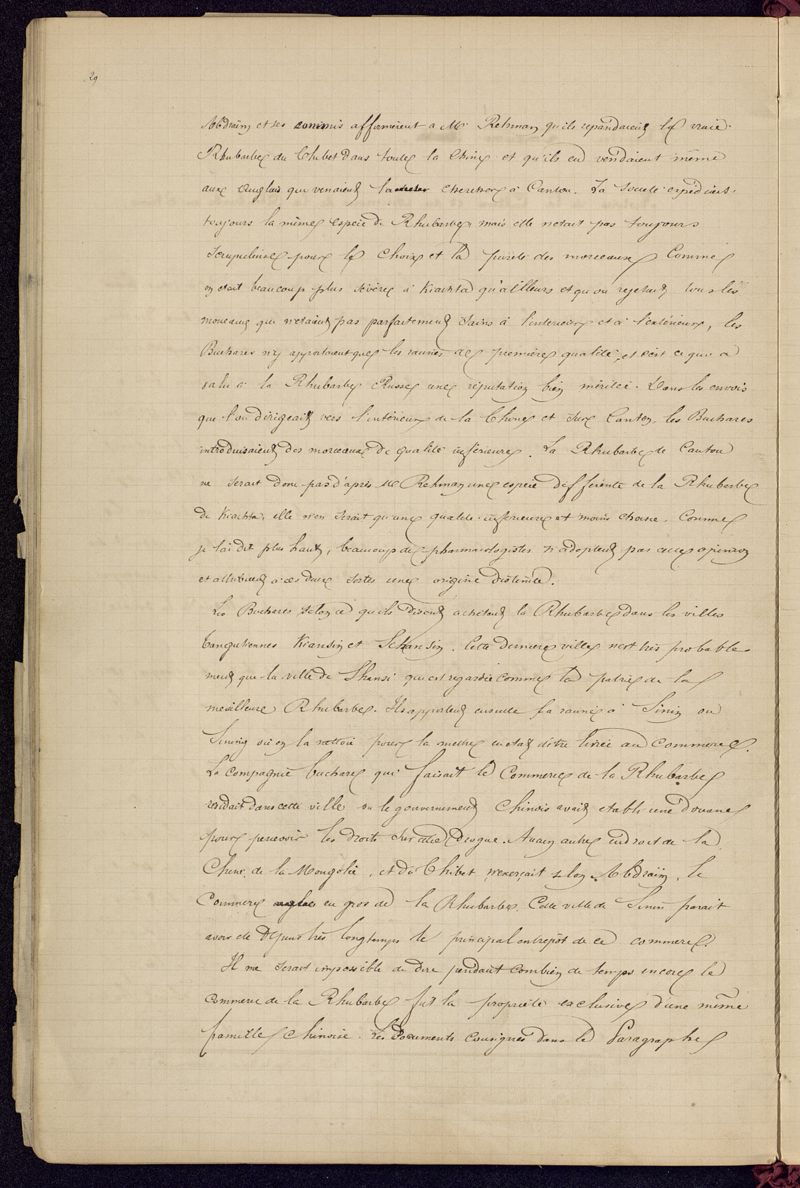 29
Abdraïm et ses commis affirmèrent a Mr Rehman qu'ils répandaient la vraie
Rhubarbe du Thibet dans toute la Chine et qu'ils en vendaient même
aux Anglais qui venaient la chercher à Canton. La Société expédiait
toujours la même espèce de Rhubarbe, mais elle n'etait pas toujours
scrupuleuse pour le choix et la pureté des morceaux. Comme
on etait beaucoup plus sévère à Kiachta qu'ailleurs et qu'on rejetait tous les
morceaux qui n'etaient pas parfaitement sains à l'interieur et à l'extérieur, les
Buchares n'y apportaient que les racines de première qualité, et c'est ce qui a
valu à la Rhubarbe Russe une réputation bien méritée. Dans les envois
que l'on dirigeait vers l'intérieur de la Chine et sur Canton, les Buchares
introduisaient des morceaux de qualité inférieure. La Rhubarbe de Canton
ne serait donc pas d'après Mr Rehman une espèce différente de la Rhubarbe
de Kiachta, elle n'en serait qu'une qualité inférieure et moins choisie. Comme
je l'ai dit plus haut, beaucoup de pharmacologistes n'adoptent pas cette opinion
et attribuent à ces deux sortes une origine distincte.
Les Buchares selon ce qu'ils disent achètent la Rhubarbe dans les villes
tangutiennes Kiansin et Schansin. Cette dernière ville n'est très probable
ment que la ville de Shansi qui est regardée comme la patrie de la
meilleure Rhubarbe. Ils apportent ensuite la racine à Sinin ou
Sining où on la nettoie pour la mettre en etat d'être livrée au commerce.
La compagnie buchare qui faisait le Commerce de la Rhubarbe
résidait dans cette ville où le gouvernement Chinois avait etabli une douane
pour percevoir les droits sur cette drogue. Aucun autre endroit de la
Chine, de la Mongolie, et du Thibet n'exerçait selon Abdraïm, le
Commerce en gros de la Rhubarbe. Cette ville de Sinin parait
avoir été depuis très longtemps le principal entrepôt de ce commerce.
Il me serait impossible de dire pendant combien de temps encore le
commerce de la Rhubarbe fut la propriété exclusive d'une même
famille Chinoise. Les documents consignés dans le Paragraphe